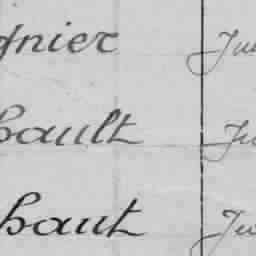 gnier Ju
bault Ju
baut Ju